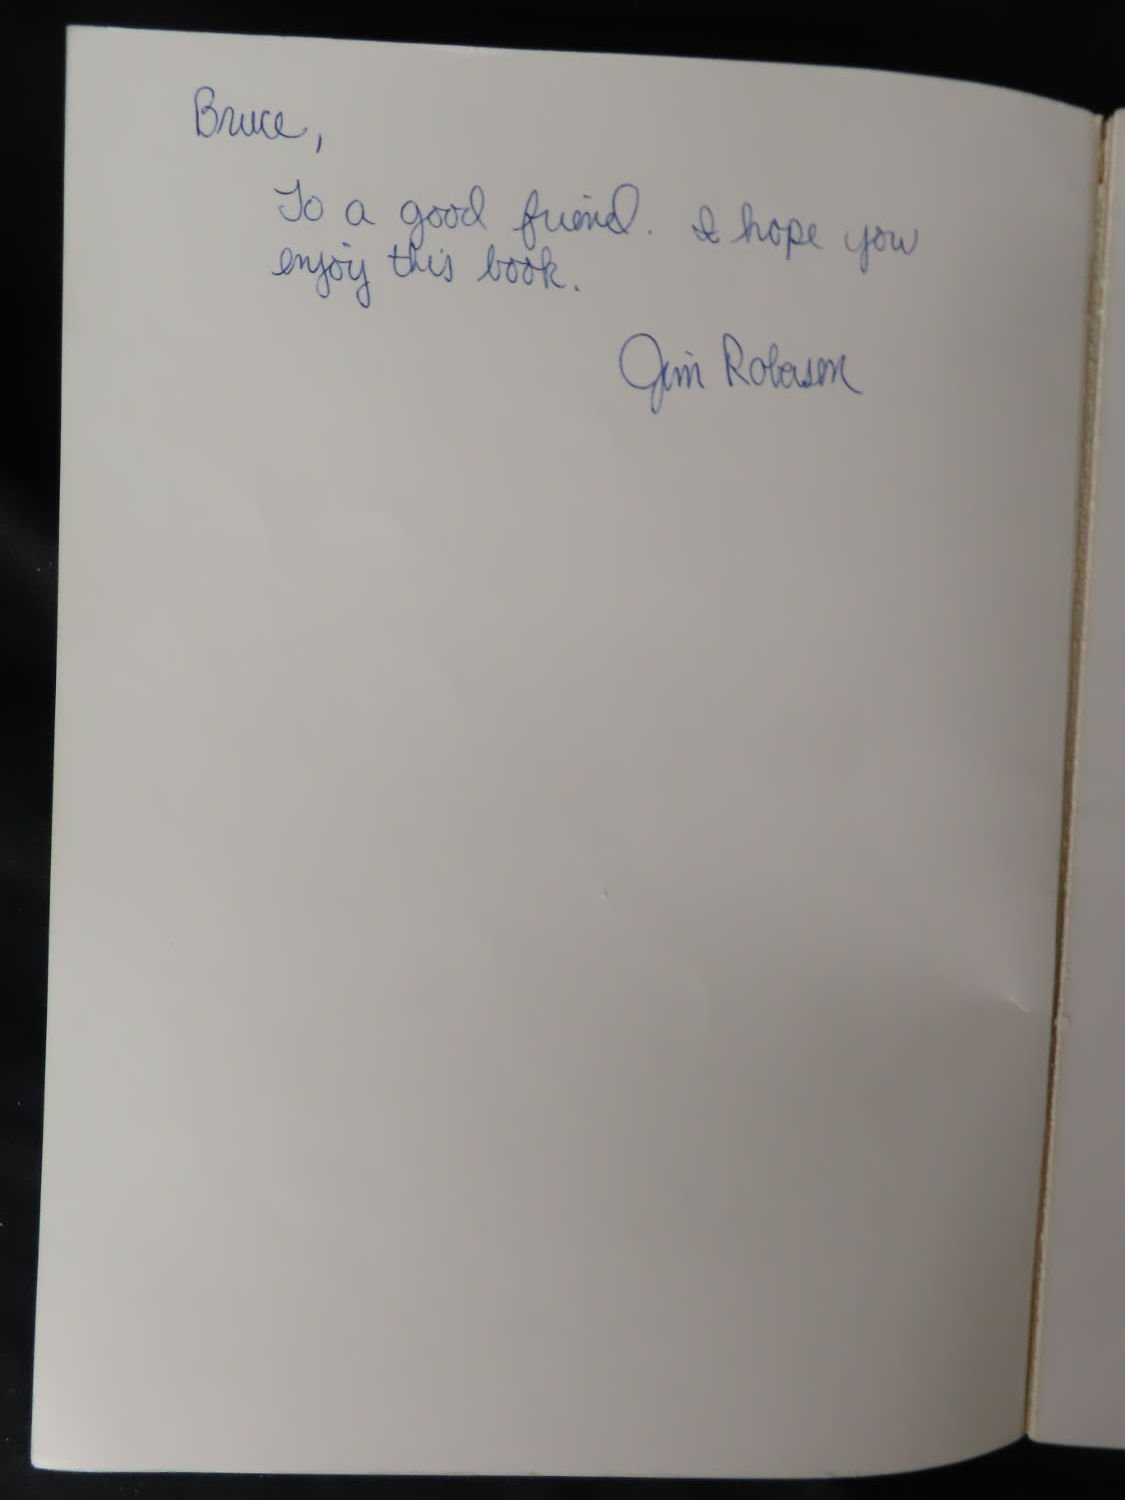 Bruce,
To a good friend. I hope you
enjoy this book.
Jim Roberson